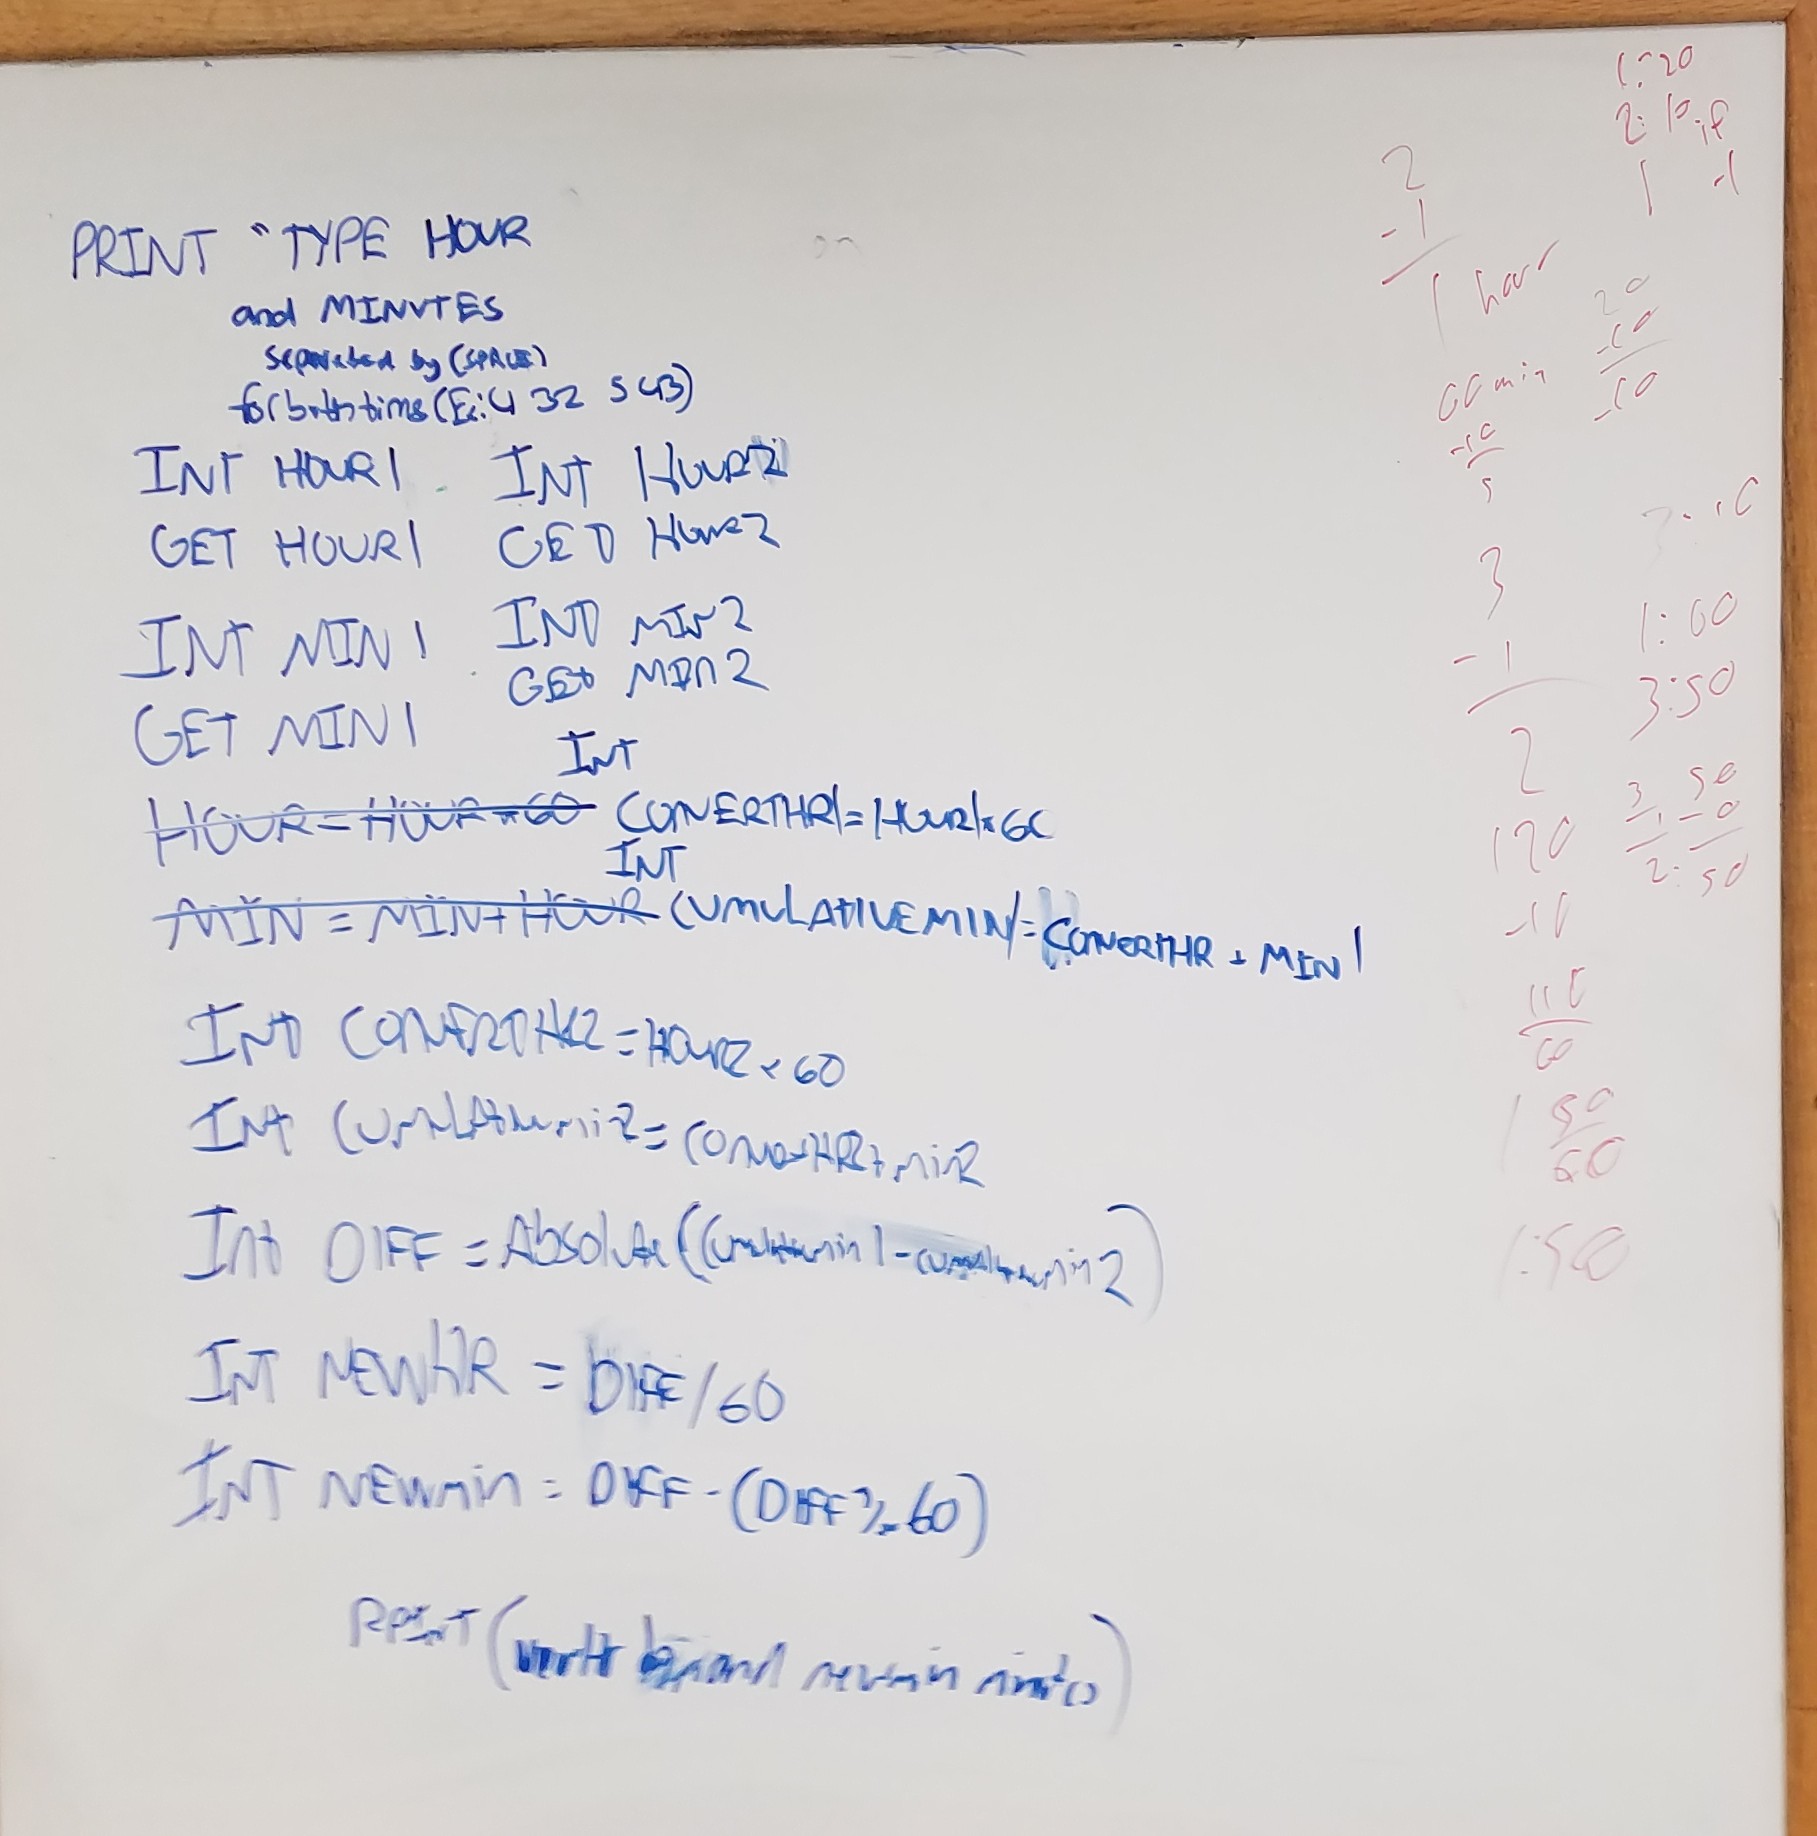 PRINT "TYPE HOUR
and MINUTES
Separated by (SPACE)
for both times (Ex: 4 32 5 43)
INT HOUR1 INT HOUR2
GET HOUR1 GET HOUR2
INT MIN1 INT MIN2
GET MIN1 GET MIN2
INT
HOUR = HOUR * 60 CONVERTHR1 = HOUR1 * 60
INT
MIN = MIN + HOUR CUMULATIVEMIN1 = CONVERTHR + MIN1
INT CONVERTHR2 = HOUR2 * 60
INT CUMULATIVEMIN2 = CONVERTHR2 + MIN2
Int DIFF = Absolute (Cumulativemin1 - cumulativemin2)
INT NEWHR = DIFF/60
INT NEWmin = DIFF - (DIFF % 60)
PRINT ( and newmin )
1:20
2:10 if
1 -1
2
-1
1 hour
20
-10
60 min
-10
3
-1
2
1:00
3:50
3 50
1 - 0
2: 50
120
-10
110
60
1 50
60
1:50